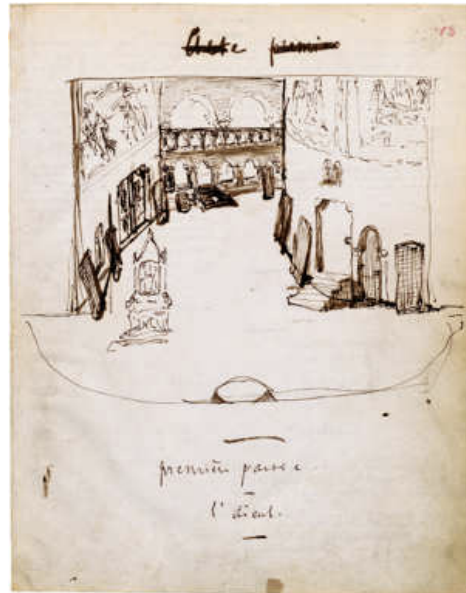 Acte premier
première partie
l'aïeul.